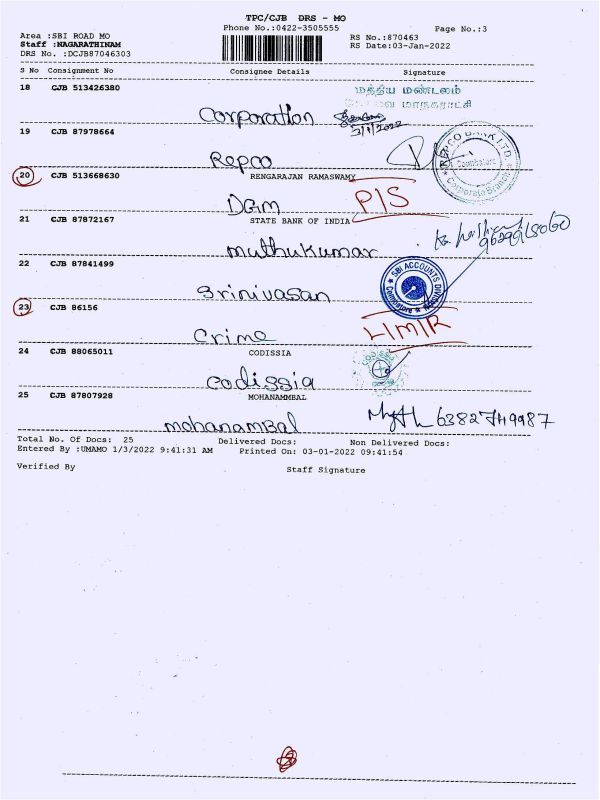 TPC/CJB DRS - MO
Phone No.:0422-3505555 Page No.:3
Area :SBI ROAD MO RS No.:870463
Staff :NAGARATHINAM RS Date:03-Jan-2022
DRS No. :DCJB87046303
S No Consignment No Consignee Details Signature
18 CJB 513426380 மத்திய மண்டலம்
கோவை மாநகராட்சி
Corporation 3/1/2022
19 CJB 87978664
REPCO BANK LTD Coimbatore Corporate Branch
Repco
20 CJB 513668630 RENGARAJAN RAMASWAMY
DGM P/S
21 CJB 87872167 STATE BANK OF INDIA
muthukumar
22 CJB 87841499 SBI ACCOUNTS Coimbatore
Srinivasan
23 CJB 86156 L/M/R
Crime
24 CJB 88065011 CODISSIA
codissia CODISSIA
25 CJB 87807928 MOHANAMMBAL
mohanamBal
Total No. Of Docs: 25 Delivered Docs: Non Delivered Docs:
Entered By :UMAMO 1/3/2022 9:41:31 AM Printed On: 03-01-2022 09:41:54
Verified By Staff Signature